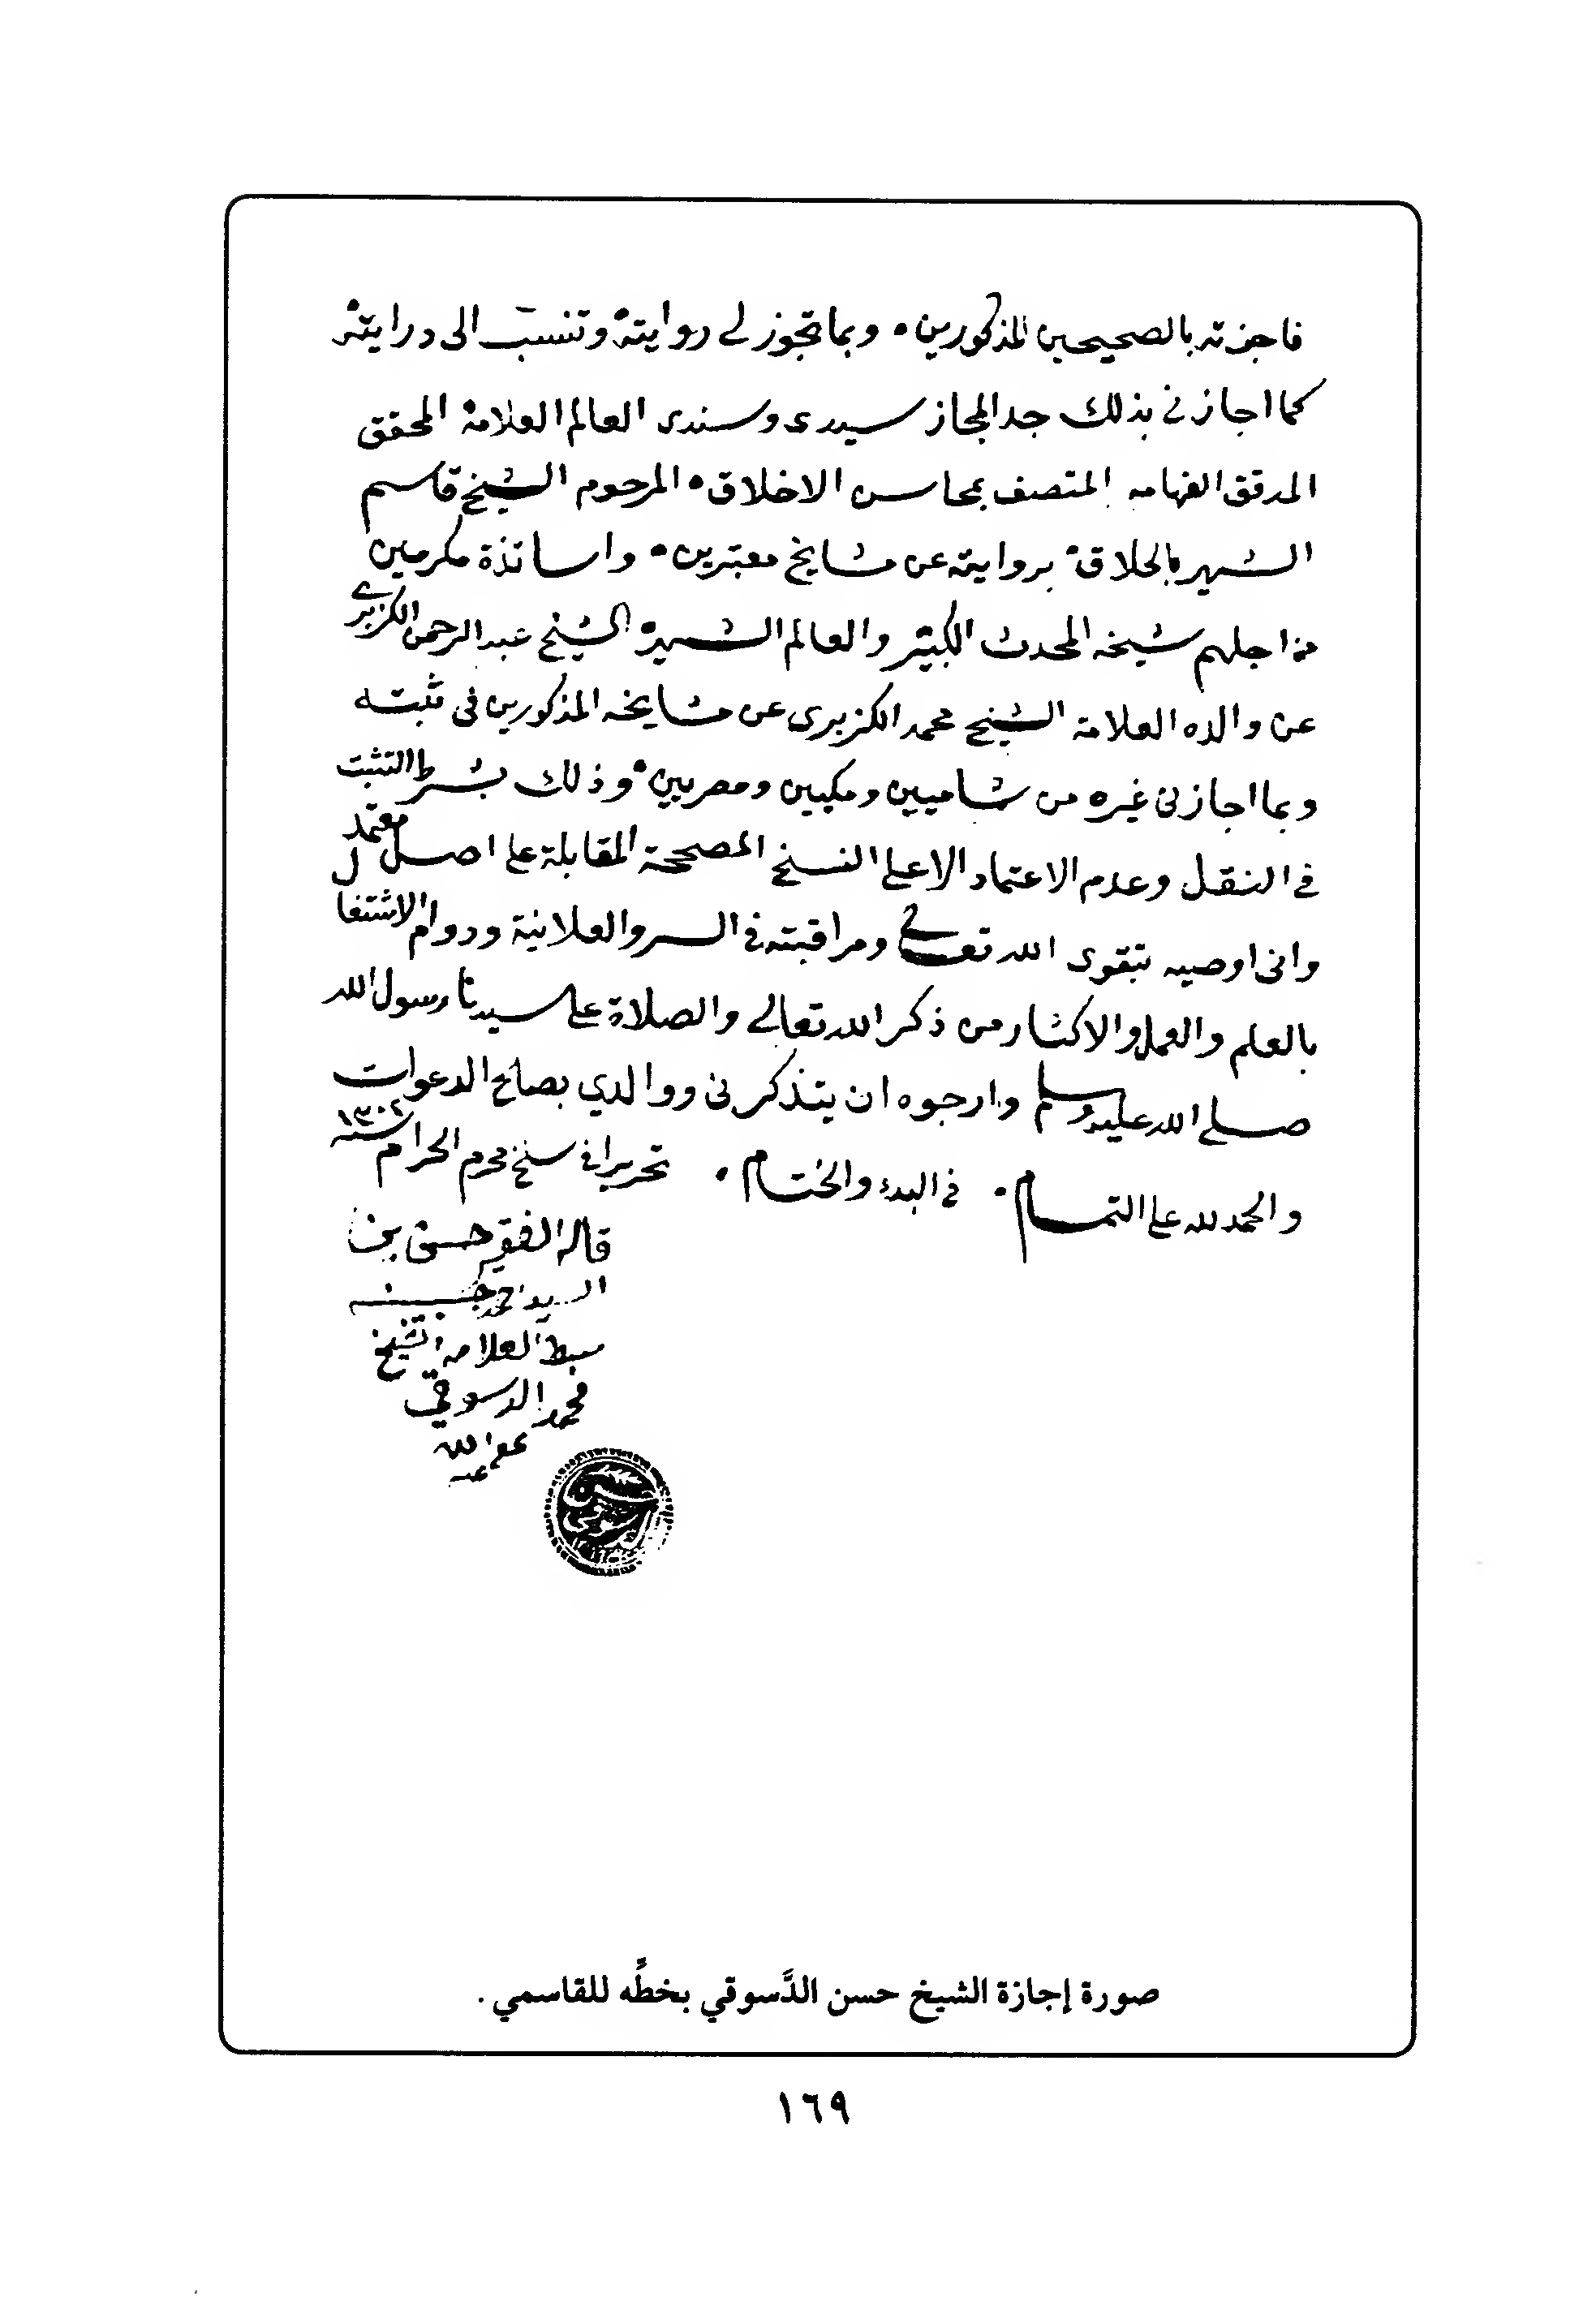 فاجزته بالصحيحين المذكورين • وبما تجوز لي روايته وتنسب الى درايته
كما اجازني بذلك جد المجاز سيدي وسندي العالم العلامة المحقق
المدقق الفهامه المتصف بمحاسن الاخلاق • المرحوم الشيخ قاسم
الشهير بالحلاق • بروايته عن مشايخ معتبرين • واساتذة مكرمين
من اجلهم شيخه المحدث الكبير والعالم الشهير الشيخ عبد الرحمن الكزبري
عن والده العلامة الشيخ محمد الكزبري عن مشايخه المذكورين في ثبته
وبما اجازني غيره من شاميين ومكيين ومصريين • وذلك بشرط التثبت
في النقل وعدم الاعتماد الا على النسخ المصححة المقابلة على اصل معتمد
واني اوصيه بتقوى الله تعالى ومراقبته في السر والعلانية ودوام الاشتغال
بالعلم والعمل والاكثار من ذكر الله تعالى والصلاة على سيدنا رسول الله
صلى الله عليه وسلم وارجوه ان يتذكرني ووالدي بصالح الدعوات
والحمد لله على التمام • في البدء والختام • تحريرا في سلخ محرم الحرام سنة ١٣٠٢
قاله الفقير حسن بن
السيد
سبط العلامه الشيخ
محمد الدسوقي
عفى الله
عنه
صورة إجازة الشيخ حسن الدَّسوقي بخطِّه للقاسمي .
١٦٩